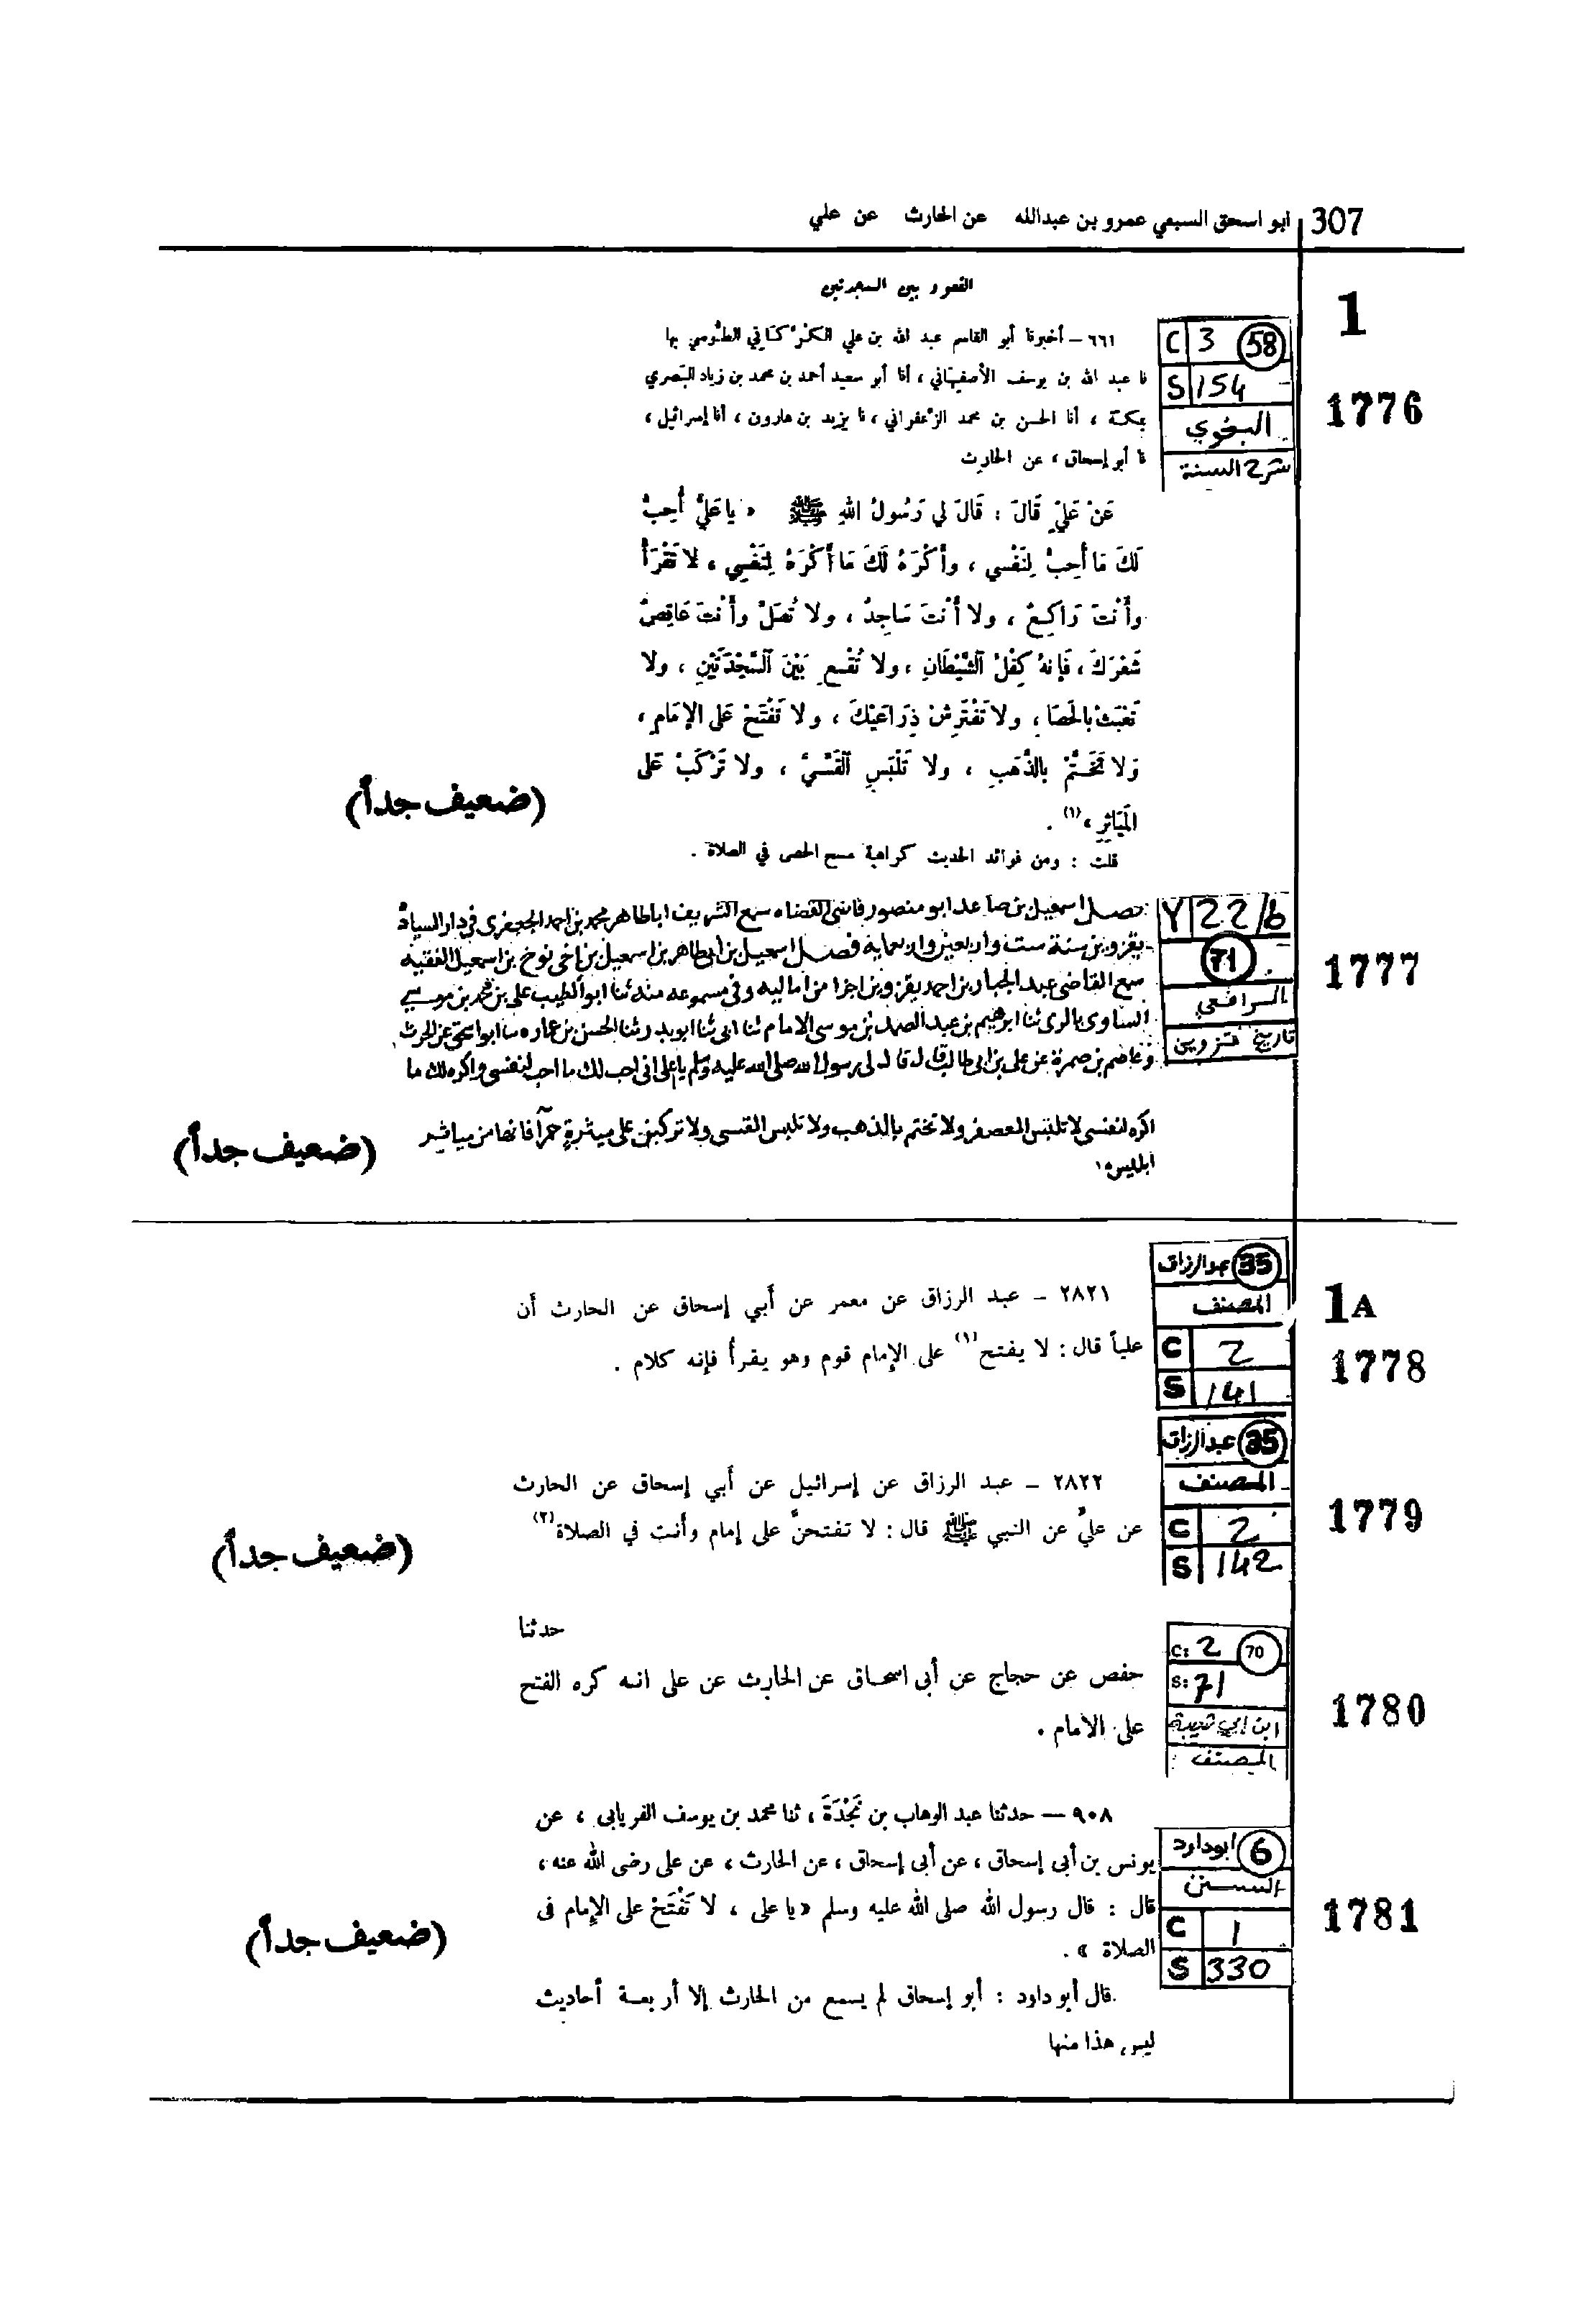 307 ابو اسحق السبعي عمرو بن عبدالله عن الحارث عن علي
1
القعود بين السجدتين
C 3 58
٦٦١ - أخبرنا أبو القاسم عبد الله بن علي الكُرَّكاني الطُّوسي بها
S 154
1776
نا عبد الله بن يوسف الأصفهاني ، أنا أبو سعيد أحمد بن محمد بن زياد البَصري
البغوي
بمكة ، أنا الحسن بن محمد الزَّعفراني ، نا يزيد بن هارون ، أنا إسرائيل ،
شرح السنة
نا أبو إسحاق ، عن الحارث
عَنْ عَليٍّ قَالَ : قَالَ لي رَسُولُ اللهِ ﷺ « يا عَليُّ أُحِبُّ
لَكَ مَا أُحِبُّ لِنَفْسي ، وأَكْرَهُ لَكَ مَا أَكْرَهُ لِنَفْسِي ، لا تَقْرَأْ
وأَنْتَ رَاكِعٌ ، ولا أَنْتَ سَاجِدٌ ، ولا تُصَلِّ وأَنْتَ عَاقِصٌ
شَعْرَكَ ، فَإِنهُ كِفْلُ الشَّيْطَانِ ، ولا تُقْعِ بَيْنَ السَّجْدَتَيْنِ ، ولا
تَعْبَثْ بالحَصَا ، ولا تَفْتَرِشْ ذِرَاعَيْكَ ، ولا تَفْتَحْ عَلى الإمَامِ ،
وَلا تَخَتَّمْ بالذَّهَبِ ، ولا تَلْبَسِ القَسِّيَّ ، ولا تَرْكَبْ عَلى
(ضعيف جداً)
المَيَاثِرِ ،(١) .
قلت : ومن فوائد الحديث كراهية مسح الحصى في الصلاة .
Y 22/b
71
الرافعي
تاريخ قزوين
1777
اسمعيل بن صاعد ابو منصور قاضى القضاه سمع الشريف ابا طاهر محمد بن احمد الجعفرى فى دار السياد
بقزوين سنة ست وأربعين واربعماية فصل اسمعيل بن ابى طاهر بن اسمعيل بن اخى نوخ بن اسمعيل الفقيه
سمع القاضى عبد الجبار بن احمد بقزوين اجزا من اماليه وفى مسموعه منه ثنا ابو الطيب على بن محمد بن موسى
الساوى بالرى ثنا ابرهيم بن عبد الصمد بن موسى الامام ثنا ابى ثنا ابو بدر ثنا الحسن بن عماره ابو اسحق عن الحرث
وعاصم بن ضمرة عن على بن ابى طالب قال قال لى رسول الله صلى الله عليه وسلم يا على انى احب لك ما احب لنفسى واكره لك ما
اكره لنفسى لا تلبس المعصفر ولا تختم بالذهب ولا تلبس القسى ولا تركبن على ميثرة حمرآ فانها من مياثر
(ضعيف جداً)
ابليس
عبد الرزاق 35
المصنف
C 2
S 141
1A
1778
٢٨٢١ - عبد الرزاق عن معمر عن أبي إسحاق عن الحارث أن
علياً قال : لا يفتح(١) على الإمام قوم وهو يقرأ فإنه كلام .
عبد الرزاق 35
المصنف
C 2
S 142
1779
٢٨٢٢ - عبد الرزاق عن إسرائيل عن أبي إسحاق عن الحارث
عن عليّ عن النبي ﷺ قال : لا تفتحنَّ على إمام وأنت في الصلاة(٢)
(ضعيف جداً)
C: 2 70
S: 71
ابن ابي شيبة
المصنف
1780
حدثنا
حفص عن حجاج عن أبي اسحاق عن الحارث عن على انه كره الفتح
على الامام .
ابوداود 6
السنن
C 1
S 330
1781
٩٠٨ — حدثنا عبد الوهاب بن نَجْدَةَ ، ثنا محمد بن يوسف الفريابى ، عن
يونس بن أبى إسحاق ، عن أبى إسحاق ، عن الحارث ، عن على رضى الله عنه ،
قال : قال رسول الله صلى الله عليه وسلم « يا على ، لا تَفْتَحْ على الإِمام فى
(ضعيف جداً)
الصلاة » .
قال أبو داود : أبو إسحاق لم يسمع من الحارث إلا أربعة أحاديث
ليس هذا منها